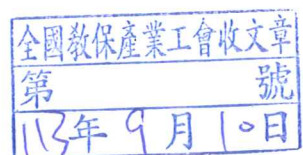 全國教保產業工會收文章
第 號
113年9月10日